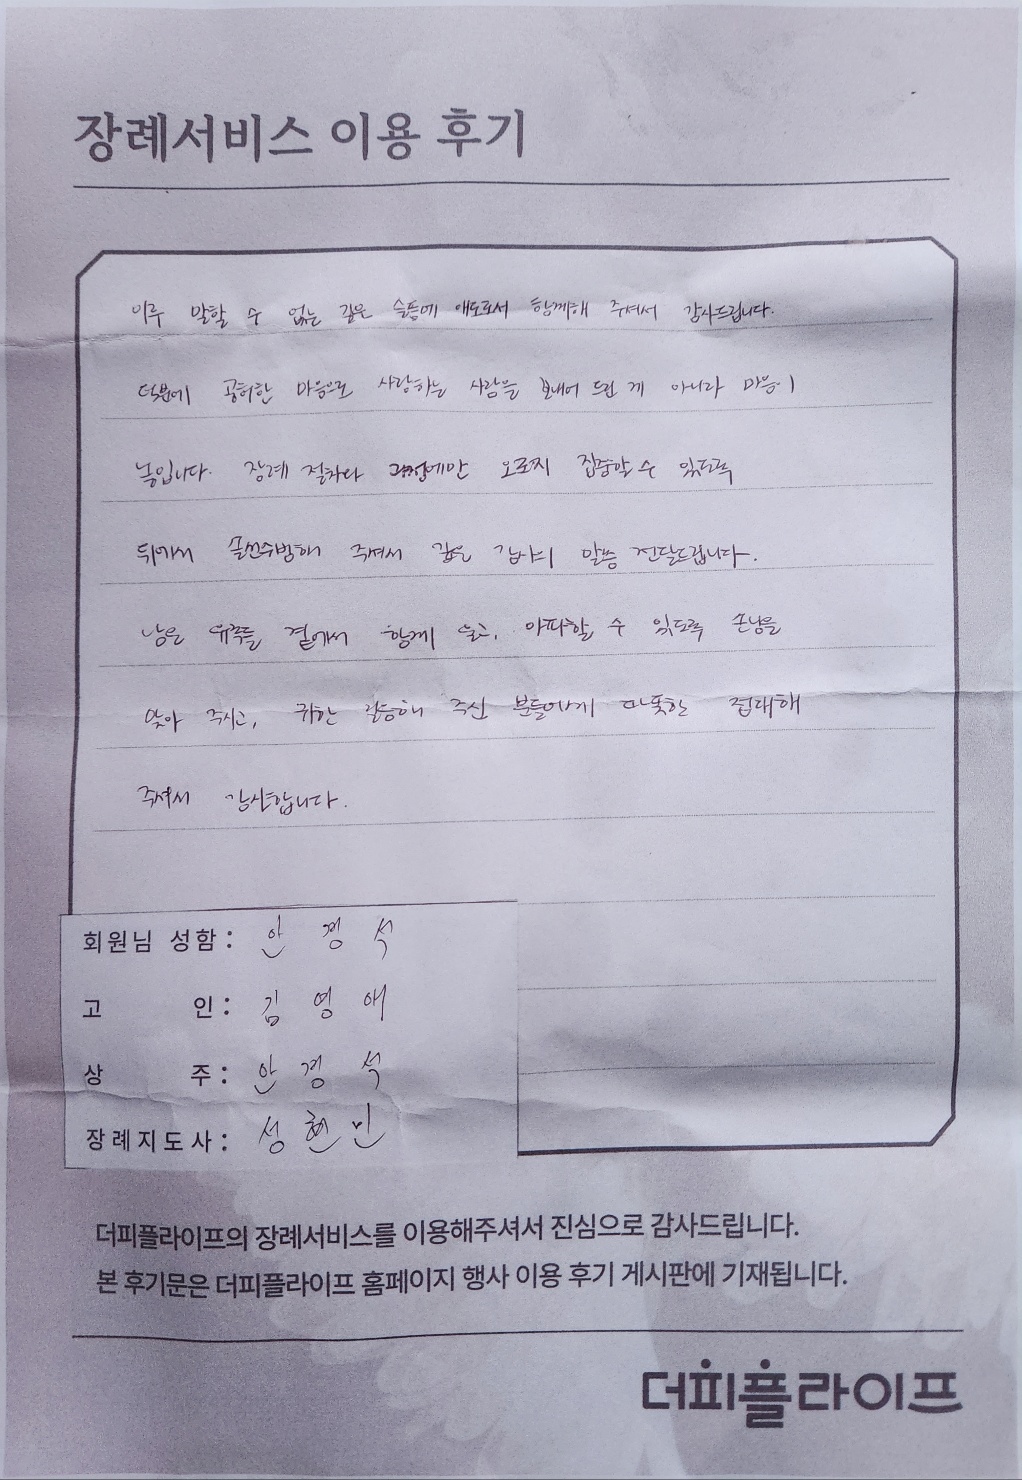 장례서비스 이용 후기
이루 말할 수 없는 깊은 슬픔에 애도로서 함께해 주셔서 감사드립니다.
덕분에 공허한 마음으로 사랑하는 사람을 보내어 드린 게 아니라 마음이
놓입니다. 장례 절차나 과정에만 오로지 집중할 수 있도록
뒤에서 솔선수범해 주셔서 깊은 감사의 말씀 전달드립니다.
남은 유족들 곁에서 함께 울고, 아파할 수 있도록 손님을
맞아 주시고, 귀한 걸음해 주신 분들에게 따뜻한 접대해
주셔서 감사합니다.
회원님 성함: 안경석
고 인: 김영애
상 주: 안경석
장례지도사: 성현민
더피플라이프의 장례서비스를 이용해주셔서 진심으로 감사드립니다.
본 후기문은 더피플라이프 홈페이지 행사 이용 후기 게시판에 기재됩니다.
더피플라이프